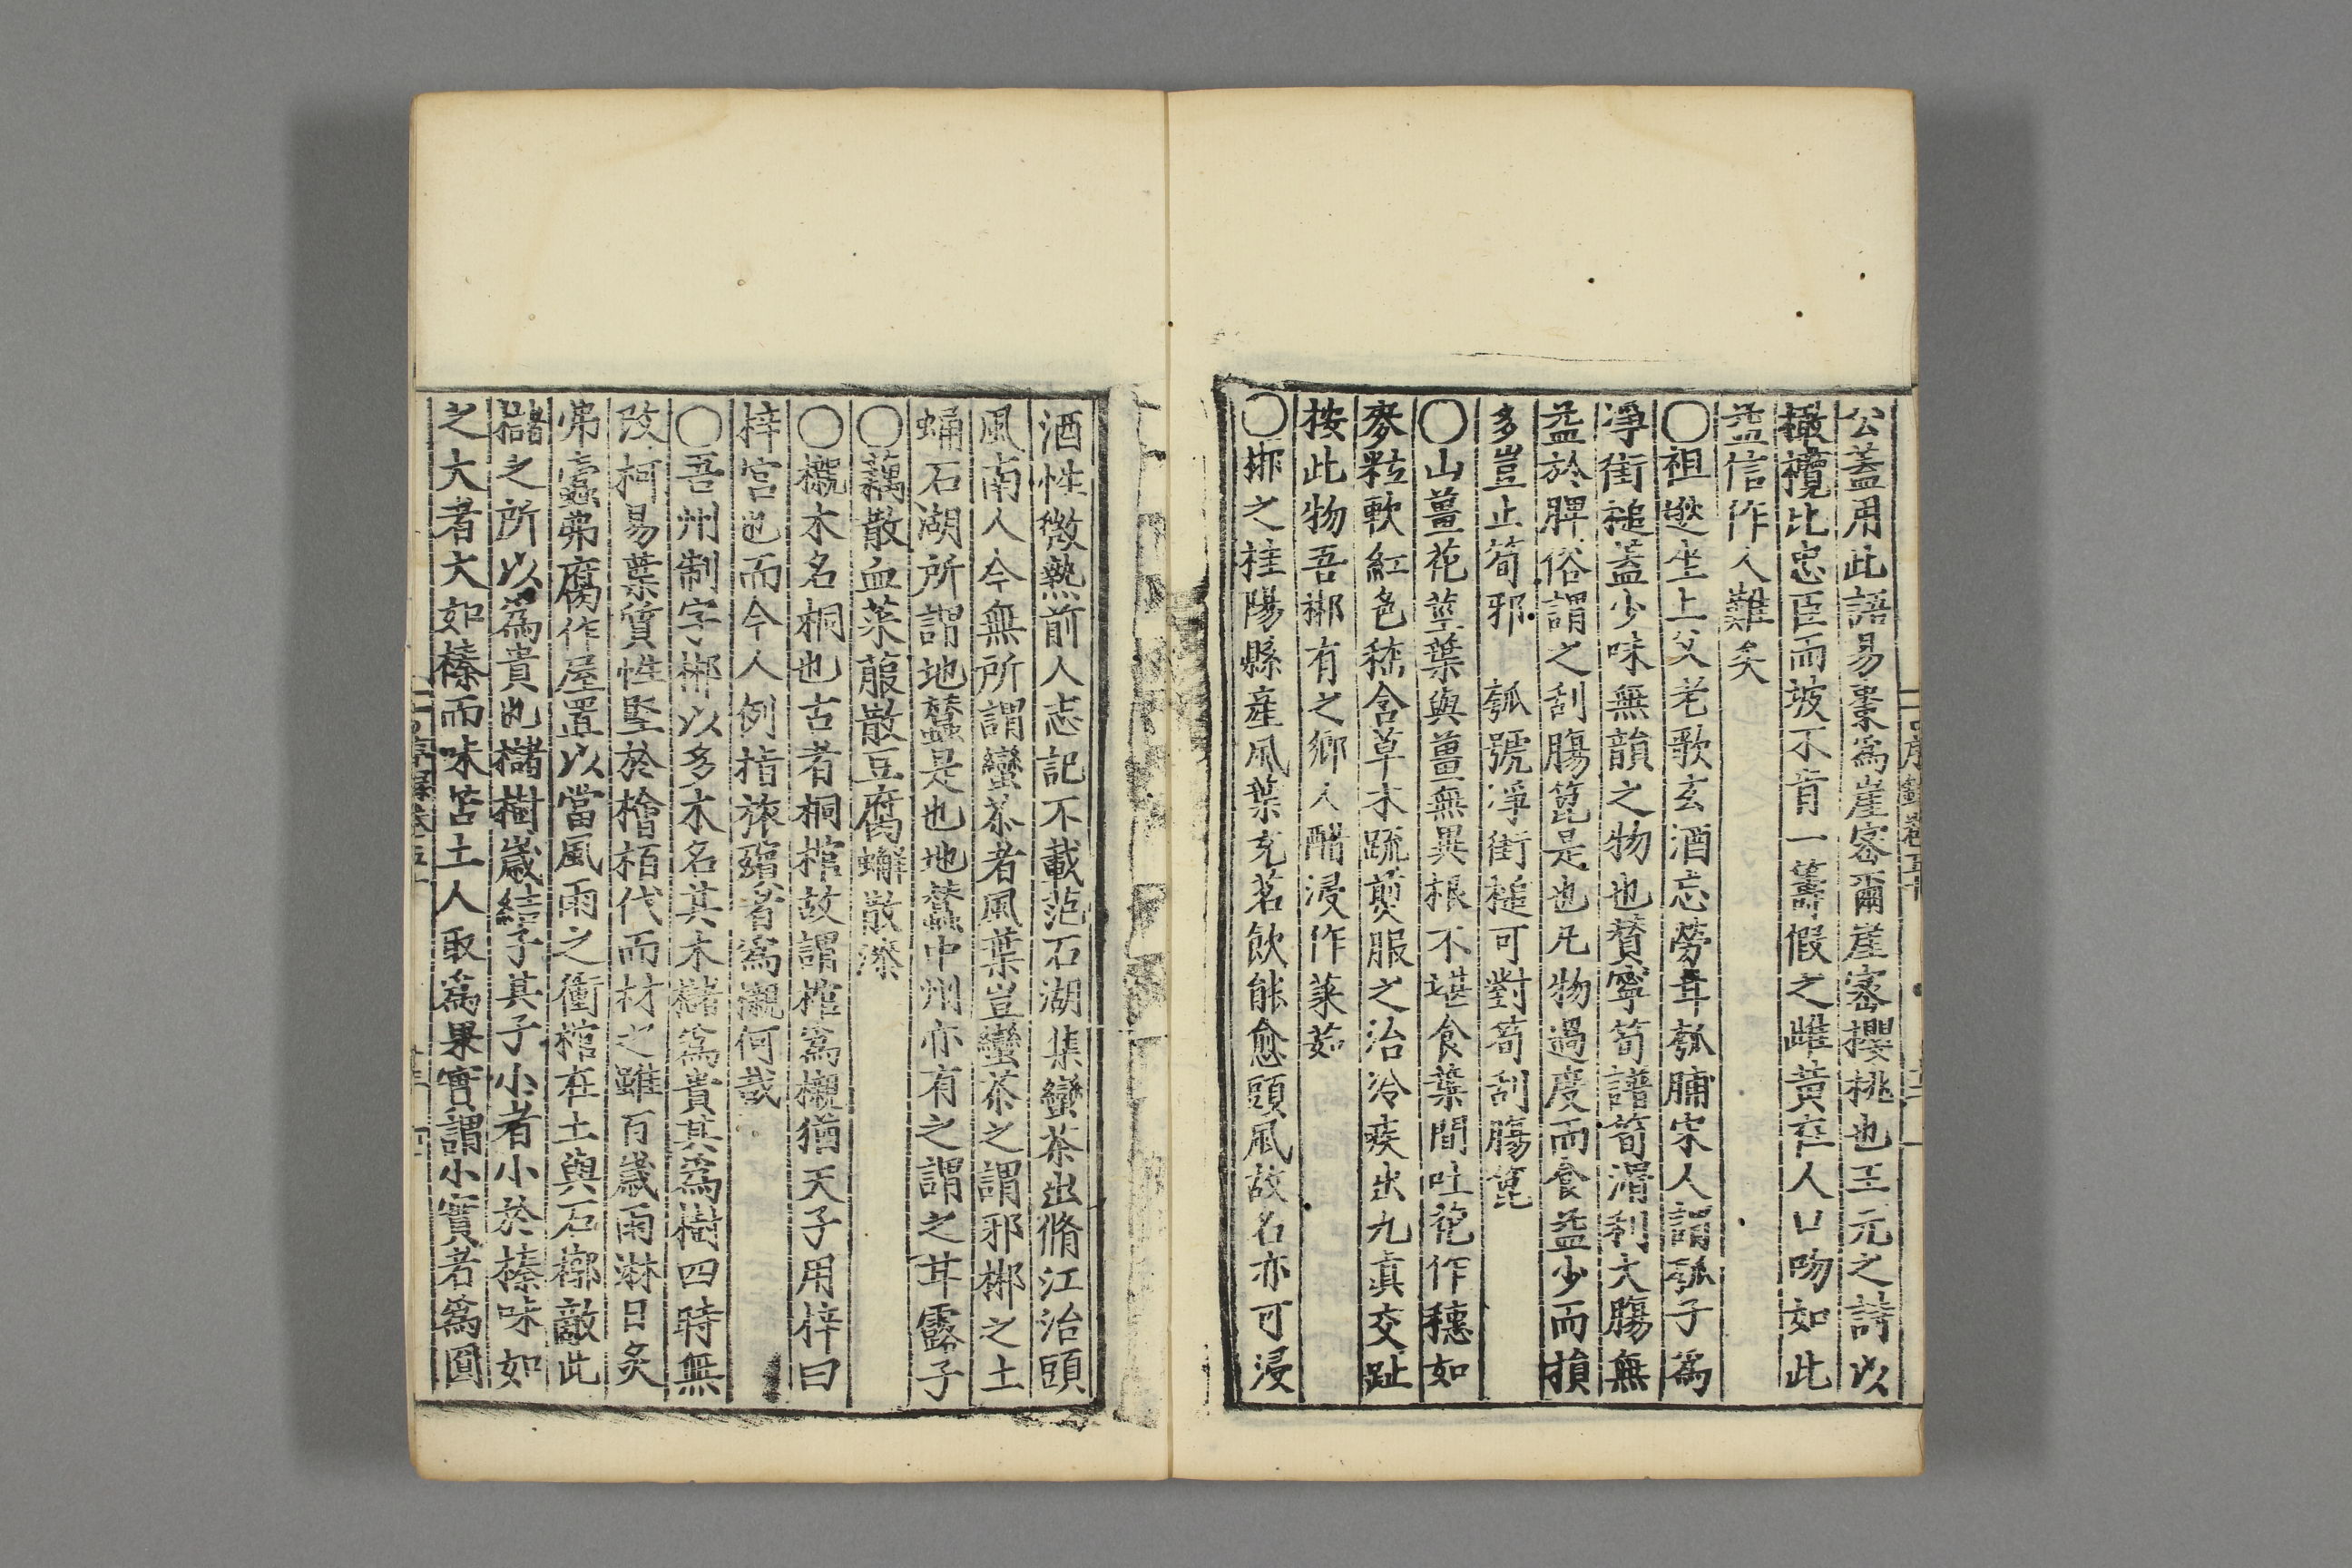 公蓋用此語易棗為崖密爾崖密櫻桃也王元之詩以
橄欖比忠臣而坡不肯一籌假之雌黃在人口吻如此
益信作人難矣
〇祖逖坐上父老歌玄酒忘勞甘瓠脯宋人謂瓠子為
淨街槌蓋少味無韻之物也贊寧筍譜筍滑利大腸無
益於脾俗謂之刮腸篦是也凡物過度而食益少而損
多豈止筍邪 瓠號淨街槌可對筍刮腸篦
〇山薑花莖葉與薑無異根不堪食葉間吐花作穗如
麥粒軟紅色嵇含草木疏煎服之治冷疾出九真交趾
按此物吾郴有之鄉人醋浸作菜茹
〇郴之桂陽縣產風葉充茗飲能愈頭風故名亦可浸
酒性微熱前人志記不載范石湖集蠻茶出脩江治頭
風南人今無所謂蠻茶者風葉豈蠻茶之謂邪郴之土
蛹石湖所謂地蠶是也地蠶中州亦有之謂之甘露子
〇藕散血菜菔散豆腐蠏散漆
〇櫬木名桐也古者桐棺故謂棺為櫬猶天子用梓曰
梓宮也而今人例指旅殯者為櫬何哉
〇吾州制字郴以多木名其木櫧為貴其為樹四時無
改柯易葉質性堅於檜栢代而材之雖百歲雨淋日炙
弗蠹弗腐作屋置以當風雨之衝棺在土與石槨敵此
櫧之所以為貴也櫧樹歲結子其子小者小於榛味如
之大者大如榛而味苦土人取為果實謂小實若為圓